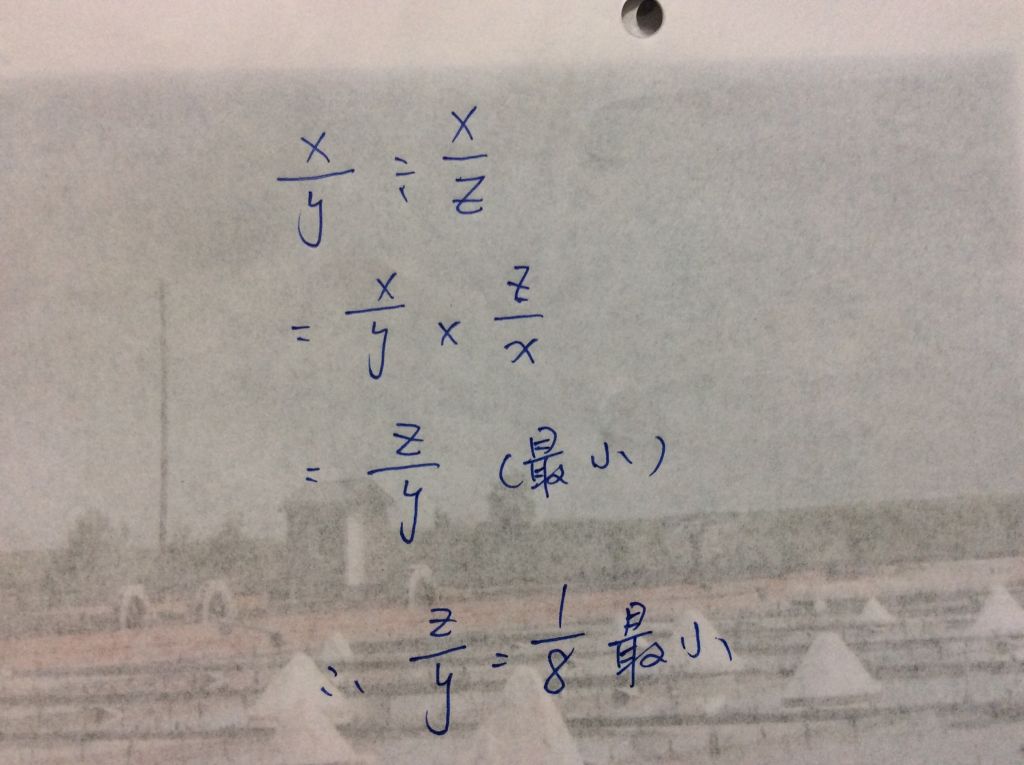 x/y ÷ x/z
= x/y × z/x
= z/y (最小)
∴ z/y = 1/8 最小